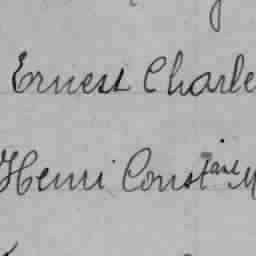 Ernest Charle
Henri Const